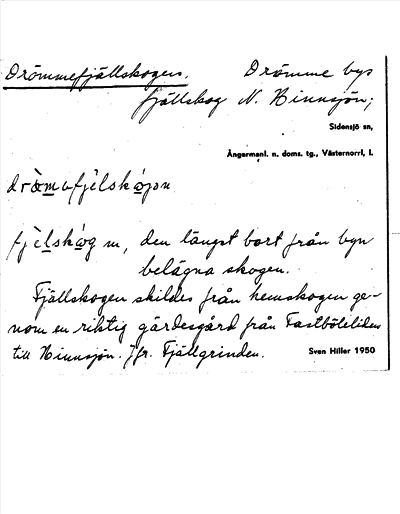 Drömmefjällskogen. Drömme bys
fjällskog N. Binnsjön;
Sidensjö sn,
Ångermanl. n. doms. tg., Västernorrl, l.
fjèlskòg m, den längst bort från byn
belägna skogen.
Fjällskogen skildes från hemskogen ge-
nom en riktig gärdesgård från Fastböleliden
till Binnsjön. Jfr. Fjällgrinden. Sven Hiller 1950